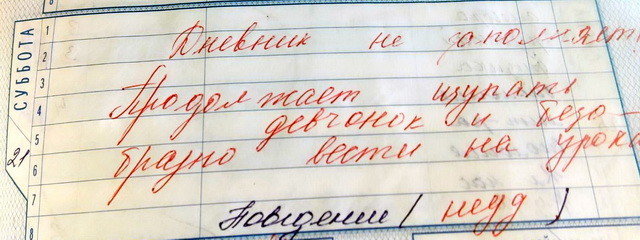 СУББОТА
21
1
2
3
4
5
6
7
8
Дневник не заполняет
Продолжает щупать
девчонок и безо
бразно вести на урока
Поведение (неуд)